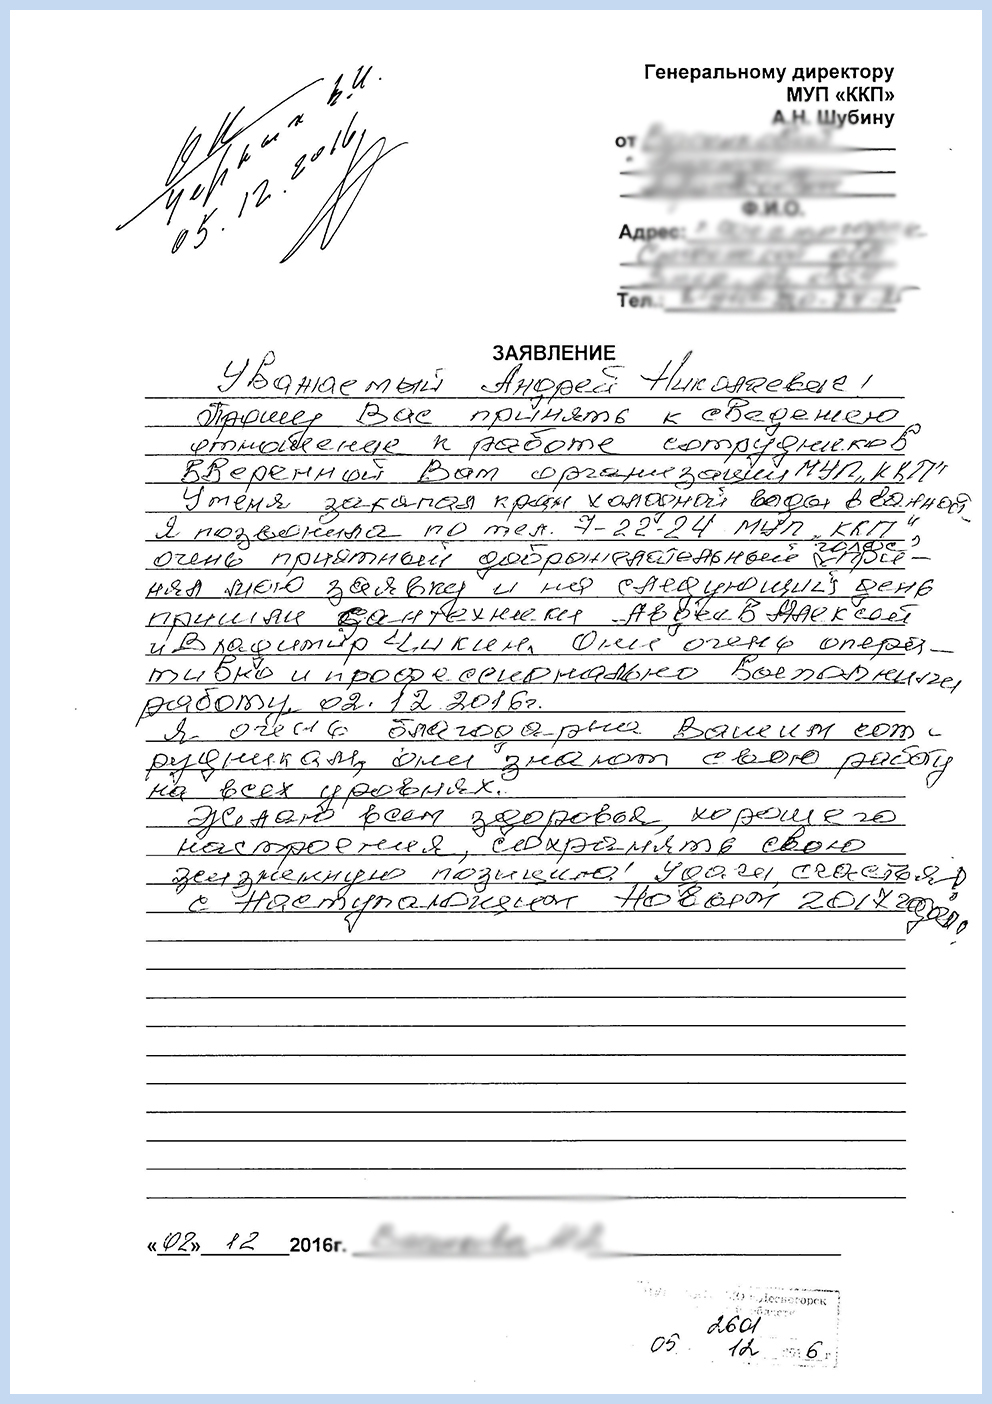 Генеральному директору
МУП «ККП»
А.Н. Шубину
ОК
Черкин В.И.
05.12.2016
от
Ф.И.О.
Адрес:
Тел.:
ЗАЯВЛЕНИЕ
Уважаемый Андрей Николаевич!
Прошу Вас принять к сведению
отношение к работе сотрудников
вверенной Вам организации МУП „ККП"
У меня закапал кран холодной воды в ванной.
Я позвонила по тел. 7-22-24 МУП „ККП",
очень приятный доброжелательный голос при-
нял мою заявку и на следующий день
пришли сантехники Авдеев Алексей
и Владимир Чикин. Они очень опера-
тивно и профессионально выполнили
работу 02.12.2016г.
Я очень благодарна Вашим сот-
рудникам, они знают свою работу
на всех уровнях.
Желаю всем здоровья, хорошего
настроения, сохранять свою
жизненную позицию! Удачи, счастья
с Наступающим Новым 2017 годом!
«02» 12 2016г.
Десногорск
области
2601
05 12 2016 г